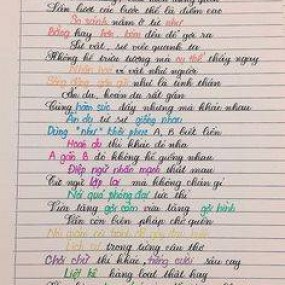 Lần lượt các bước thế là điểm cao
So sánh nằm ở từ như
Bằng hay hơn kém đều để gợi ra
Sự vật, sự việc quanh ta
Không hề trừu tượng mà cụ thể thấy ngay
Nhân hóa ví vật như người
Sống động gần gũi như là tình thân
Ẩn dụ, hoán dụ rất gần
Cùng hàm súc đấy nhưng mà khác nhau
Ẩn dụ từ sự giống nhau
Dùng "như" khôi phục A, B tức liền
Hoán dụ thì khác đó nha
A gần B đó không hề giống nhau
Điệp ngữ nhấn mạnh thật mau
Từ ngữ lặp lại mà không chán gì
Nói quá phóng đại tức thì
Vừa tăng gợi cảm vừa tăng gợi hình
Vẫn còn biện pháp chế
trong từng câu thơ
Chơi chữ thì khác, tiếng cười sâu cay
Liệt kê hàng loạt thật hay